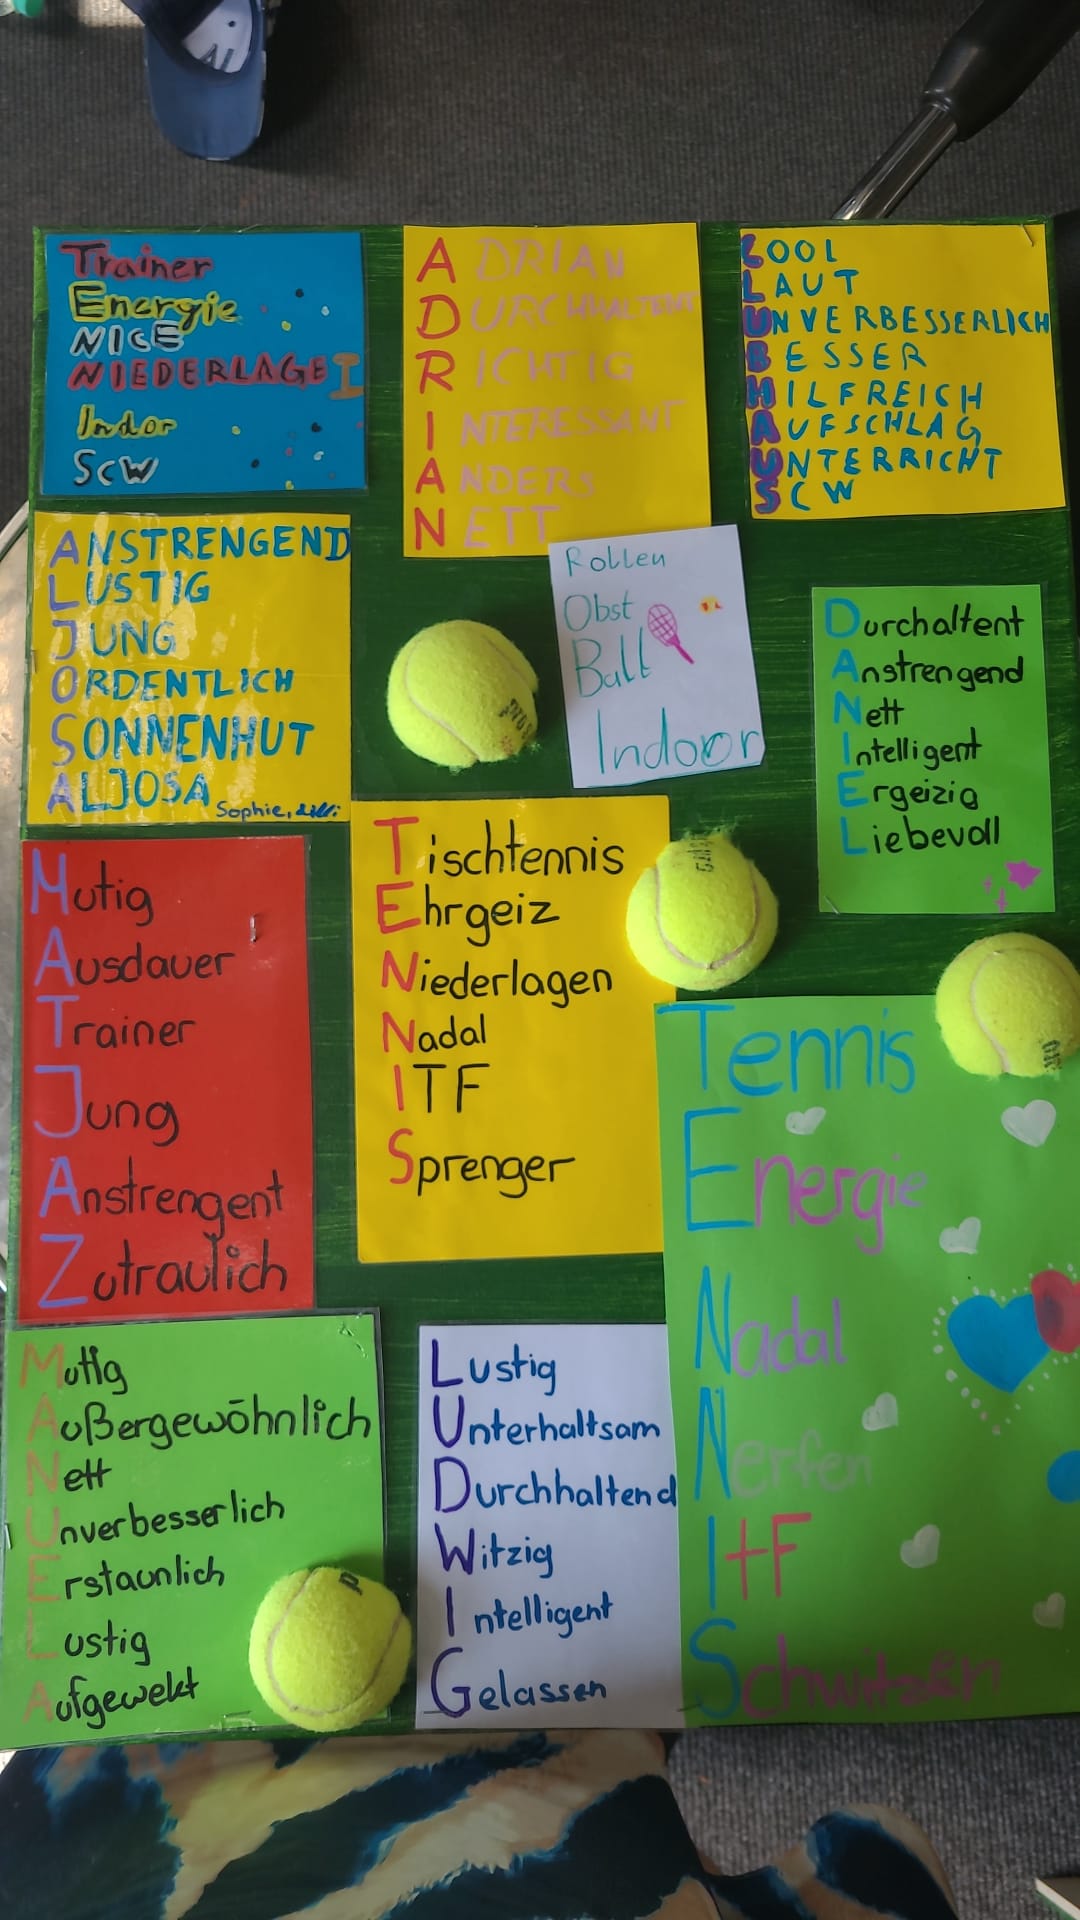 Trainer
Energie
NICE
NIEDERLAGE
Indor
SCW
ADRIAN
DURCHHALTENT
RICHTIG
INTERESSANT
ANDERS
NETT
COOL
LAUT
UNVERBESSERLICH
BESSER
HILFREICH
AUFSCHLAG
UNTERRICHT
SCW
ANSTRENGEND
LUSTIG
JUNG
ORDENTLICH
SONNENHUT
ALJOSA
Sophie,
Rollen
Obst
Ball
Indoor
Durchaltent
Anstrengend
Nett
Intelligent
Ergeizig
Liebevoll
Mutig
Ausdauer
Trainer
Jung
Anstrengent
Zutraulich
Tischtennis
Ehrgeiz
Niederlagen
Nadal
ITF
Sprenger
Tennis
Energie
Nadal
Nerfen
ItF
Schwitzen
Mutig
Außergewöhnlich
Nett
Unverbesserlich
Erstaunlich
Lustig
Aufgewekt
Lustig
Unterhaltsam
Durchhaltend
Witzig
Intelligent
Gelassen